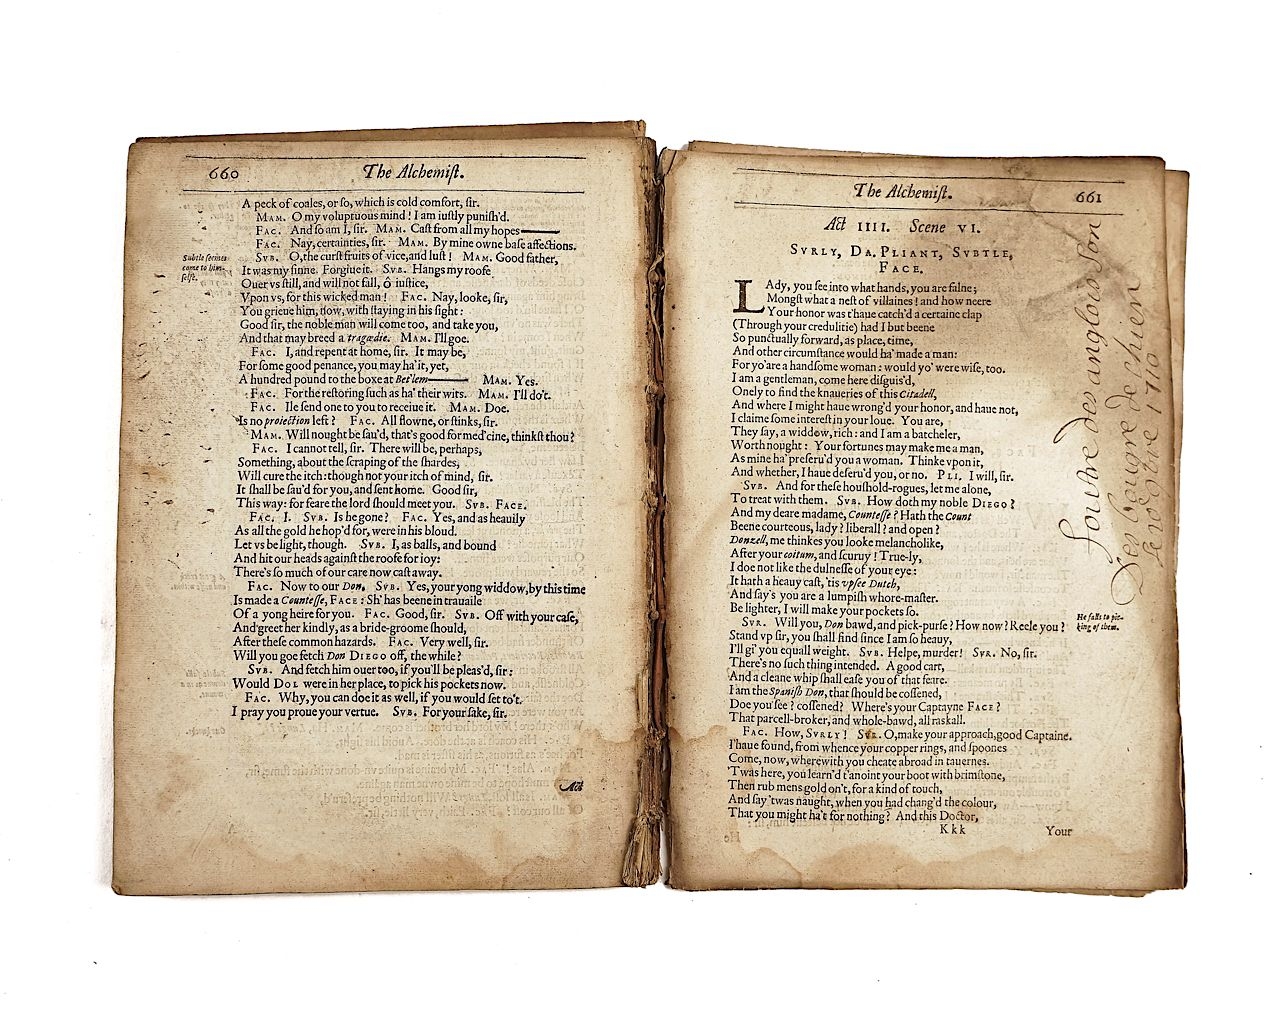 660 The Alchemiſt.
A peck of coales, or ſo, which is cold comfort, ſir.
MAM. O my voluptuous mind! I am iuſtly puniſh'd.
FAC. And ſo am I, ſir. MAM. Caſt from all my hopes——
FAC. Nay, certainties, ſir. MAM. By mine owne baſe affections.
Subtle ſeemes
come to him-
ſelfe.
SVB. O, the curſt fruits of vice, and luſt! MAM. Good father,
It was my ſinne. Forgiue it. SVB. Hangs my roofe
Ouer vs ſtill, and will not fall, ô iuſtice,
Vpon vs, for this wicked man! FAC. Nay, looke, ſir,
You grieue him, now, with ſtaying in his ſight:
Good ſir, the noble man will come too, and take you,
And that may breed a tragœdie. MAM. I'll goe.
FAC. I, and repent at home, ſir. It may be,
For ſome good penance, you may ha' it, yet,
A hundred pound to the boxe at Bet'lem—— MAM. Yes.
FAC. For the reſtoring ſuch as ha' their wits. MAM. I'll do't.
FAC. Ile ſend one to you to receiue it. MAM. Doe.
Is no proiection left? FAC. All flowne, or ſtinks, ſir.
MAM. Will nought be ſau'd, that's good for med'cine, thinkſt thou?
FAC. I cannot tell, ſir. There will be, perhaps,
Something, about the ſcraping of the ſhardes,
Will cure the itch: though not your itch of mind, ſir.
It ſhall be ſau'd for you, and ſent home. Good ſir,
This way: for feare the lord ſhould meet you. SVB. FACE.
FAC. I. SVB. Is he gone? FAC. Yes, and as heauily
As all the gold he hop'd for, were in his bloud.
Let vs be light, though. SVB. I, as balls, and bound
And hit our heads againſt the roofe for ioy:
There's ſo much of our care now caſt away.
FAC. Now to our Don, SVB. Yes, your yong widdow, by this time
Is made a Counteſſe, FACE: Sh' has beene in trauaile
Of a yong heire for you. FAC. Good, ſir. SVB. Off with your caſe,
And greet her kindly, as a bride-groome ſhould,
After theſe common hazards. FAC. Very well, ſir.
Will you goe fetch Don DIEGO off, the while?
SVB. And fetch him ouer too, if you'll be pleas'd, ſir:
Would DOL were in her place, to pick his pockets now.
FAC. Why, you can doe it as well, if you would ſet to't.
I pray you proue your vertue. SVB. For your ſake, ſir.
Act
The Alchemiſt. 661
Act IIII. Scene VI.
SVRLY, DA. PLIANT, SVBTLE,
FACE.
LAdy, you ſee into what hands, you are falne;
Mongſt what a neſt of villaines! and how neere
Your honor was t'haue catch'd a certaine clap
(Through your credulitie) had I but beene
So punctually forward, as place, time,
And other circumſtance would ha' made a man:
For yo'are a handſome woman: would yo' were wiſe, too.
I am a gentleman, come here diſguis'd,
Onely to find the knaueries of this Citadell,
And where I might haue wrong'd your honor, and haue not,
I claime ſome intereſt in your loue. You are,
They ſay, a widdow, rich: and I am a batcheler,
Worth nought: Your fortunes may make me a man,
As mine ha' preſeru'd you a woman. Thinke vpon it,
And whether, I haue deſeru'd you, or no. PLI. I will, ſir.
SVB. And for theſe houſhold-rogues, let me alone,
To treat with them. SVB. How doth my noble DIEGO?
And my deare madame, Counteſſe? Hath the Count
Beene courteous, lady? liberall? and open?
Donzell, me thinkes you looke melancholike,
After your coitum, and ſcuruy! True-ly,
I doe not like the dulneſſe of your eye:
It hath a heauy caſt, 'tis vpſee Dutch,
And ſay's you are a lumpiſh whore-maſter.
Be lighter, I will make your pockets ſo.
He falls to pic-
king of them.
SVR. Will you, Don bawd, and pick-purſe? How now? Reele you?
Stand vp ſir, you ſhall find ſince I am ſo heauy,
I'll gi' you equall weight. SVB. Helpe, murder! SVR. No, ſir.
There's no ſuch thing intended. A good cart,
And a cleane whip ſhall eaſe you of that feare.
I am the Spaniſh Don, that ſhould be coſſened,
Doe you ſee? coſſened? Where's your Captayne FACE?
That parcell-broker, and whole-bawd, all raskall.
FAC. How, SVRLY! SVR. O, make your approach, good Captaine.
I'haue found, from whence your copper rings, and ſpoones
Come, now, wherewith you cheate abroad in tauernes.
'Twas here, you learn'd t'anoint your boot with brimſtone,
Then rub mens gold on't, for a kind of touch,
And ſay 'twas naught, when you had chang'd the colour,
That you might ha't for nothing? And this Doctor,
Kkk Your
foutre des anglois son
des bougre de chien
1710